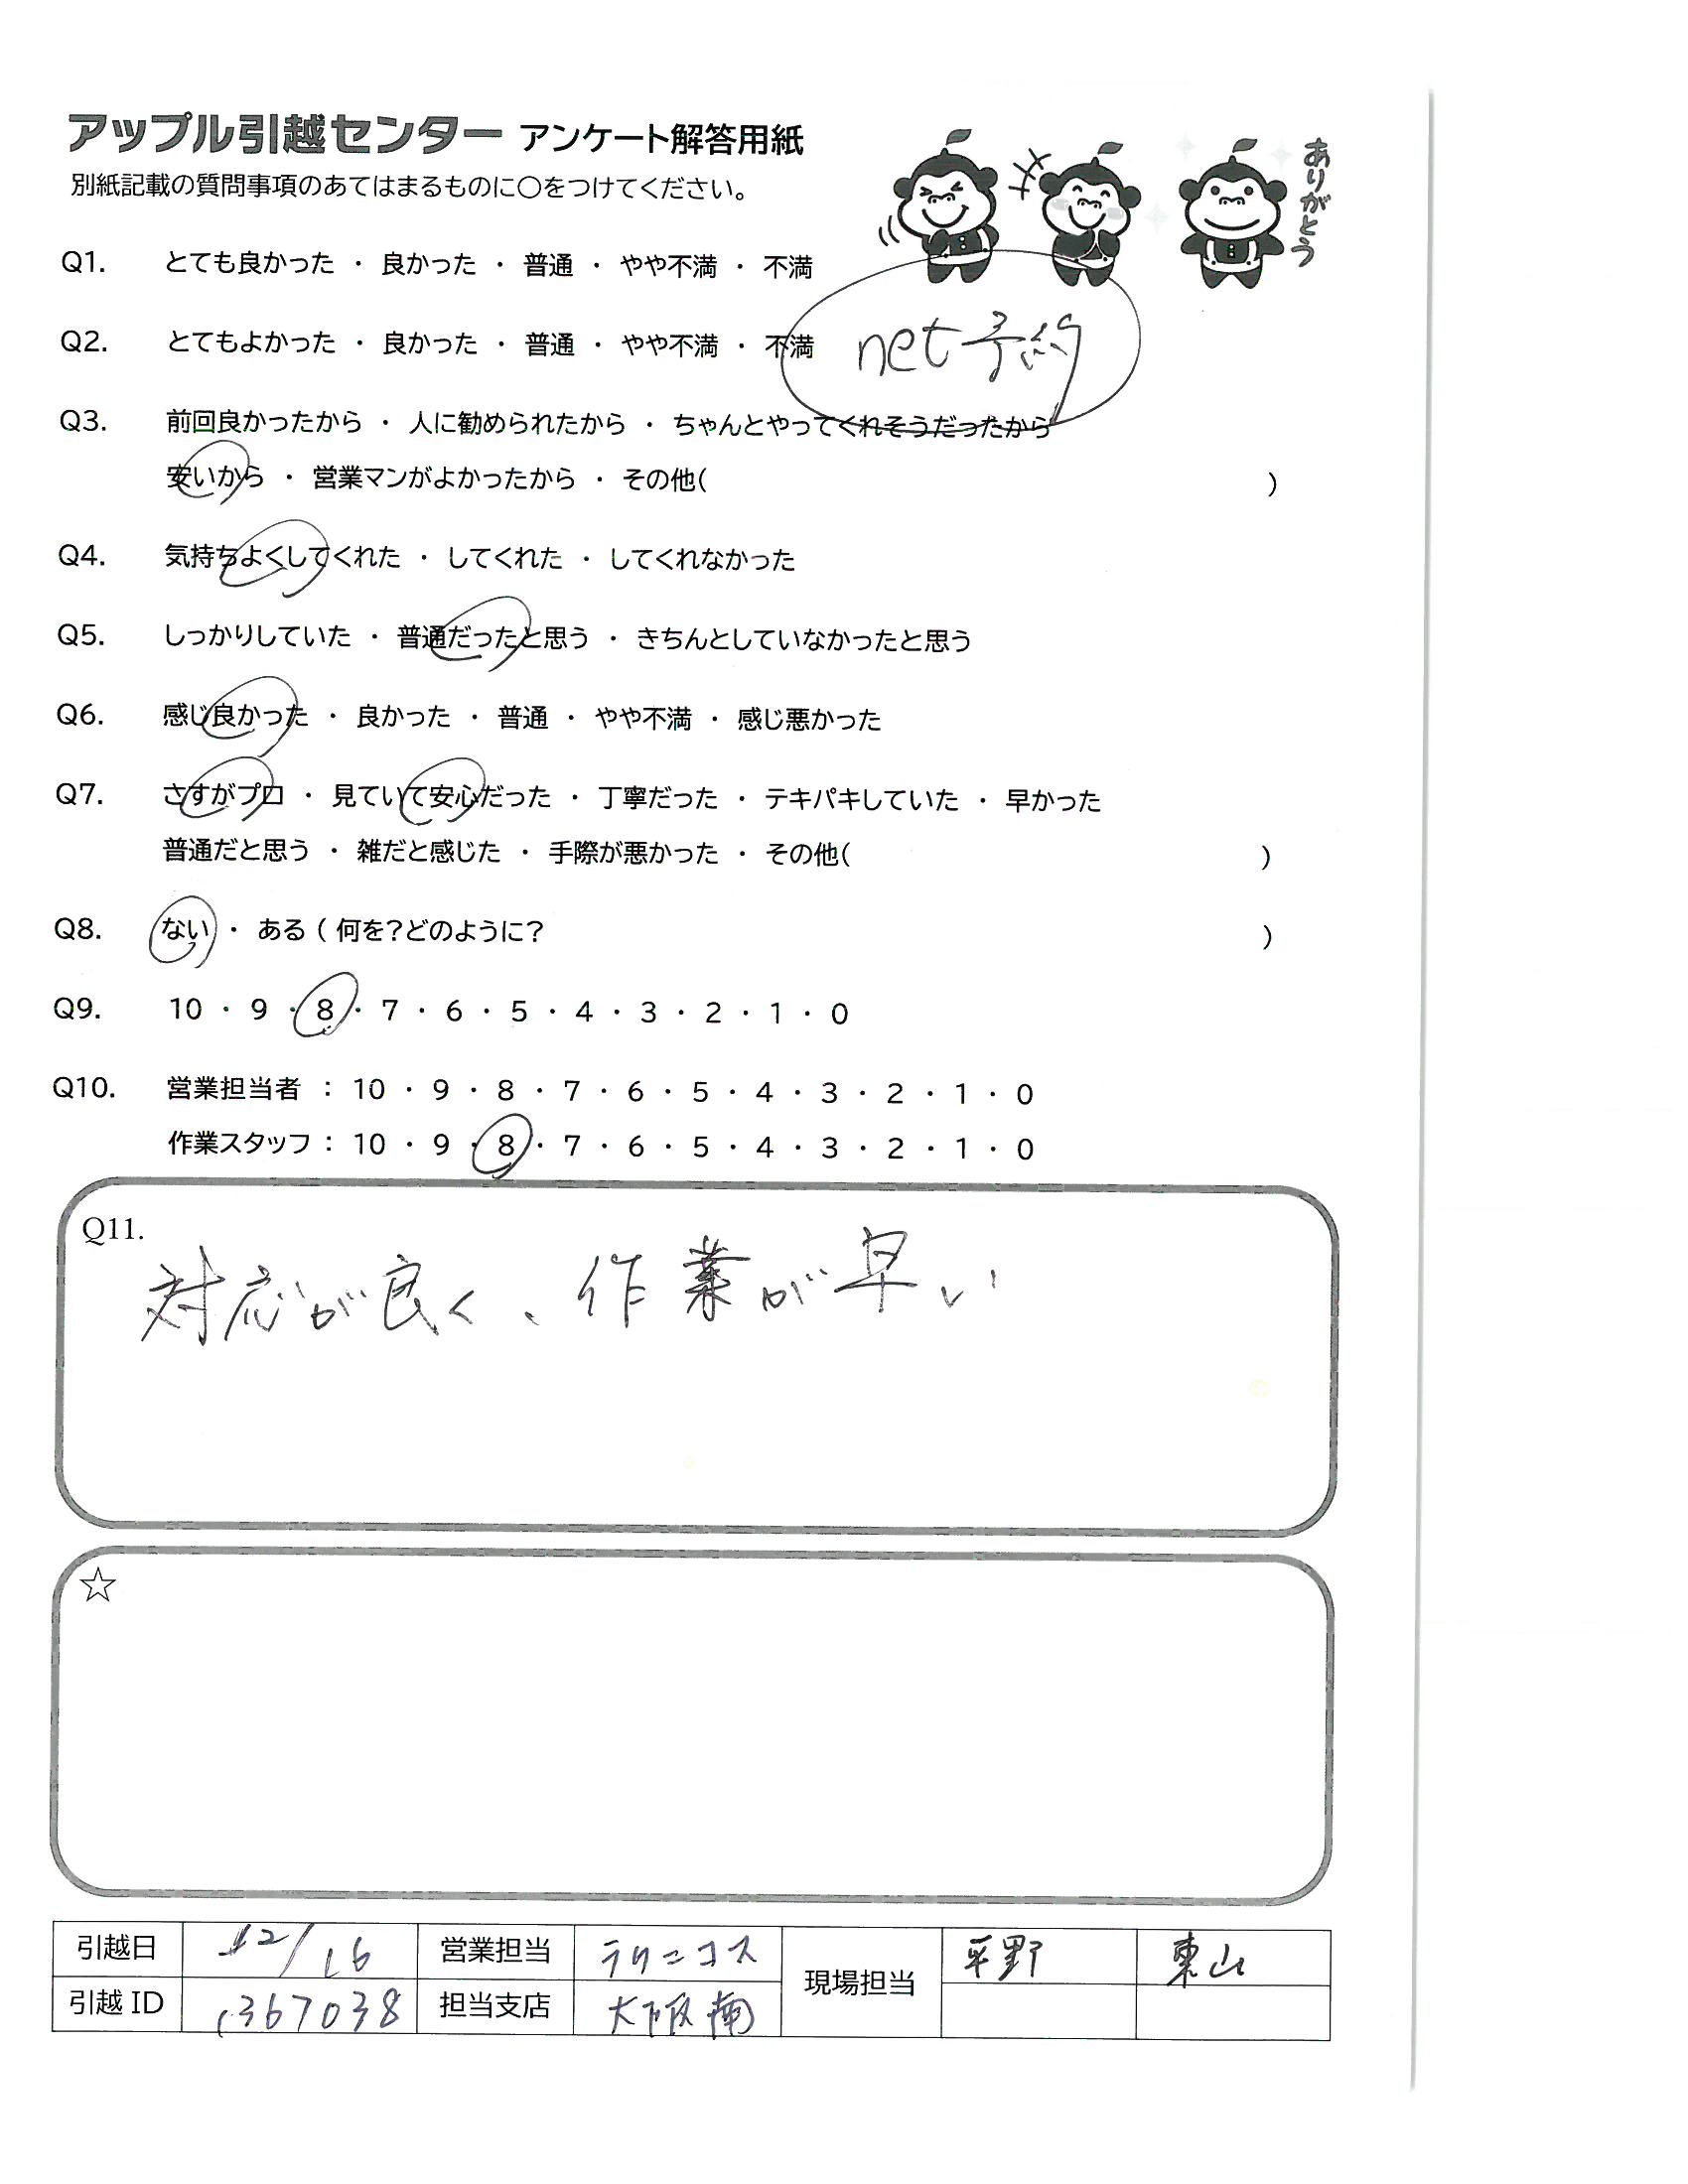 アップル引越センター アンケート解答用紙
別紙記載の質問事項のあてはまるものに〇をつけてください。
ありがとう
Q1. とても良かった ・ 良かった ・ 普通 ・ やや不満 ・ 不満
Q2. とてもよかった ・ 良かった ・ 普通 ・ やや不満 ・ 不満
net予約
Q3. 前回良かったから ・ 人に勧められたから ・ ちゃんとやってくれそうだったから
安いから ・ 営業マンがよかったから ・ その他( )
Q4. 気持ちよくしてくれた ・ してくれた ・ してくれなかった
Q5. しっかりしていた ・ 普通だったと思う ・ きちんとしていなかったと思う
Q6. 感じ良かった ・ 良かった ・ 普通 ・ やや不満 ・ 感じ悪かった
Q7. さすがプロ ・ 見ていて安心だった ・ 丁寧だった ・ テキパキしていた ・ 早かった
普通だと思う ・ 雑だと感じた ・ 手際が悪かった ・ その他( )
Q8. ない ・ ある ( 何を?どのように? )
Q9. 10 ・ 9 ・ 8 ・ 7 ・ 6 ・ 5 ・ 4 ・ 3 ・ 2 ・ 1 ・ 0
Q10. 営業担当者 : 10 ・ 9 ・ 8 ・ 7 ・ 6 ・ 5 ・ 4 ・ 3 ・ 2 ・ 1 ・ 0
作業スタッフ : 10 ・ 9 ・ 8 ・ 7 ・ 6 ・ 5 ・ 4 ・ 3 ・ 2 ・ 1 ・ 0
Q11.
対応が良く、作業が早い
☆
引越日 12/16 営業担当 ラクニコス 現場担当 平野 東山
引越 ID 1367038 担当支店 大阪南